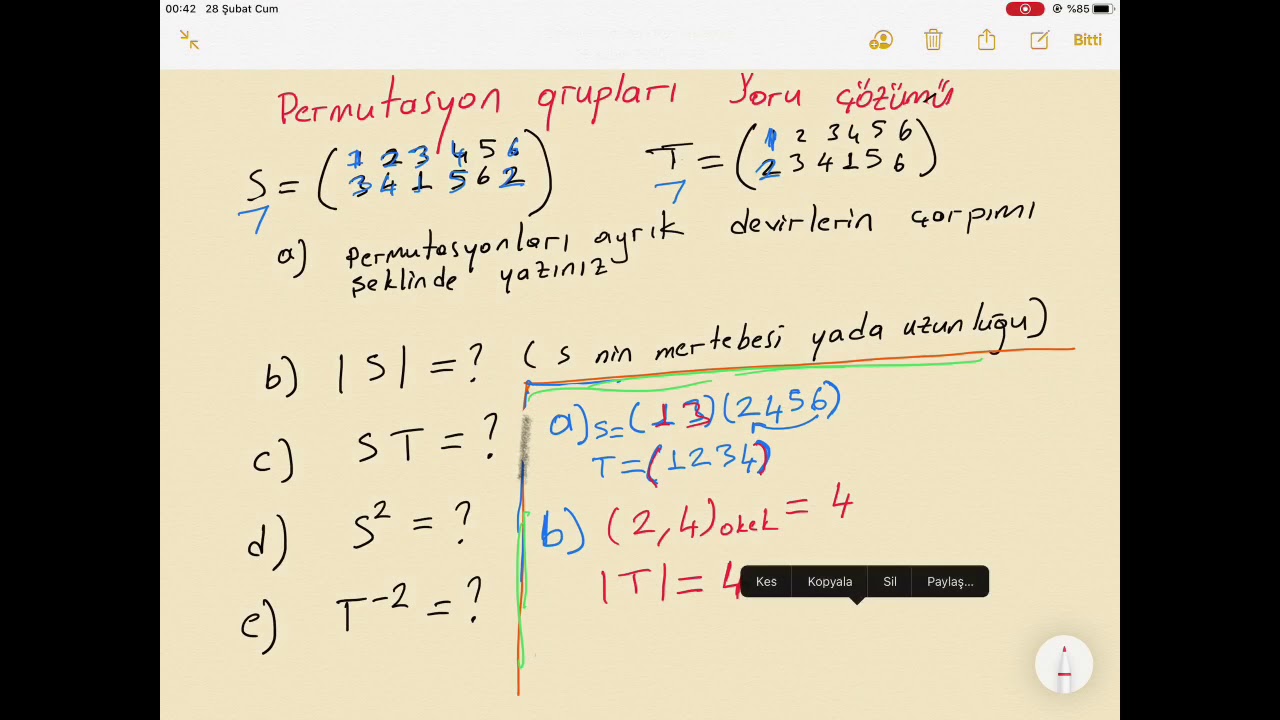 00:42 28 Şubat Cum
%85
Bitti
Permutasyon grupları Soru çözümü
S = ( 1 2 3 4 5 6
3 4 1 5 6 2 )
T = ( 1 2 3 4 5 6
2 3 4 1 5 6 )
a) Permutasyonları ayrık devirlerin çarpımı
şeklinde yazınız
b) |S| = ? ( s nin mertebesi yada uzunluğu)
c) ST = ?
d) S² = ?
e) T⁻² = ?
a) S = (1 3)(2456)
T = (1234)
b) (2,4)okek = 4
|T| = 4
Kes Kopyala Sil Paylaş...